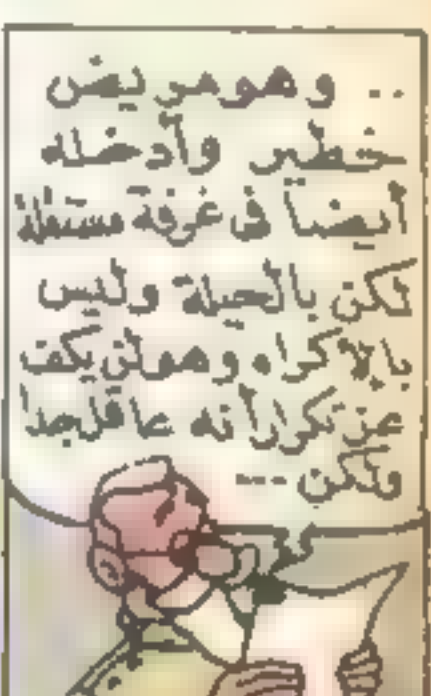 .. وهو مريض
خطير وأدخله
أيضا فى غرفة مستقلة
لكن بالحيلة وليس
بالإكراه وهو لن يكف
عن تكرار أنه عاقل جدا
ولكن ---